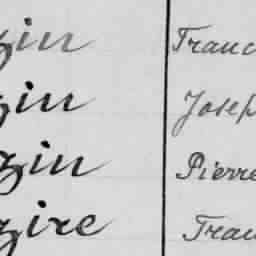 zin Franc
zin Josep
zin Pierre
zire Fran